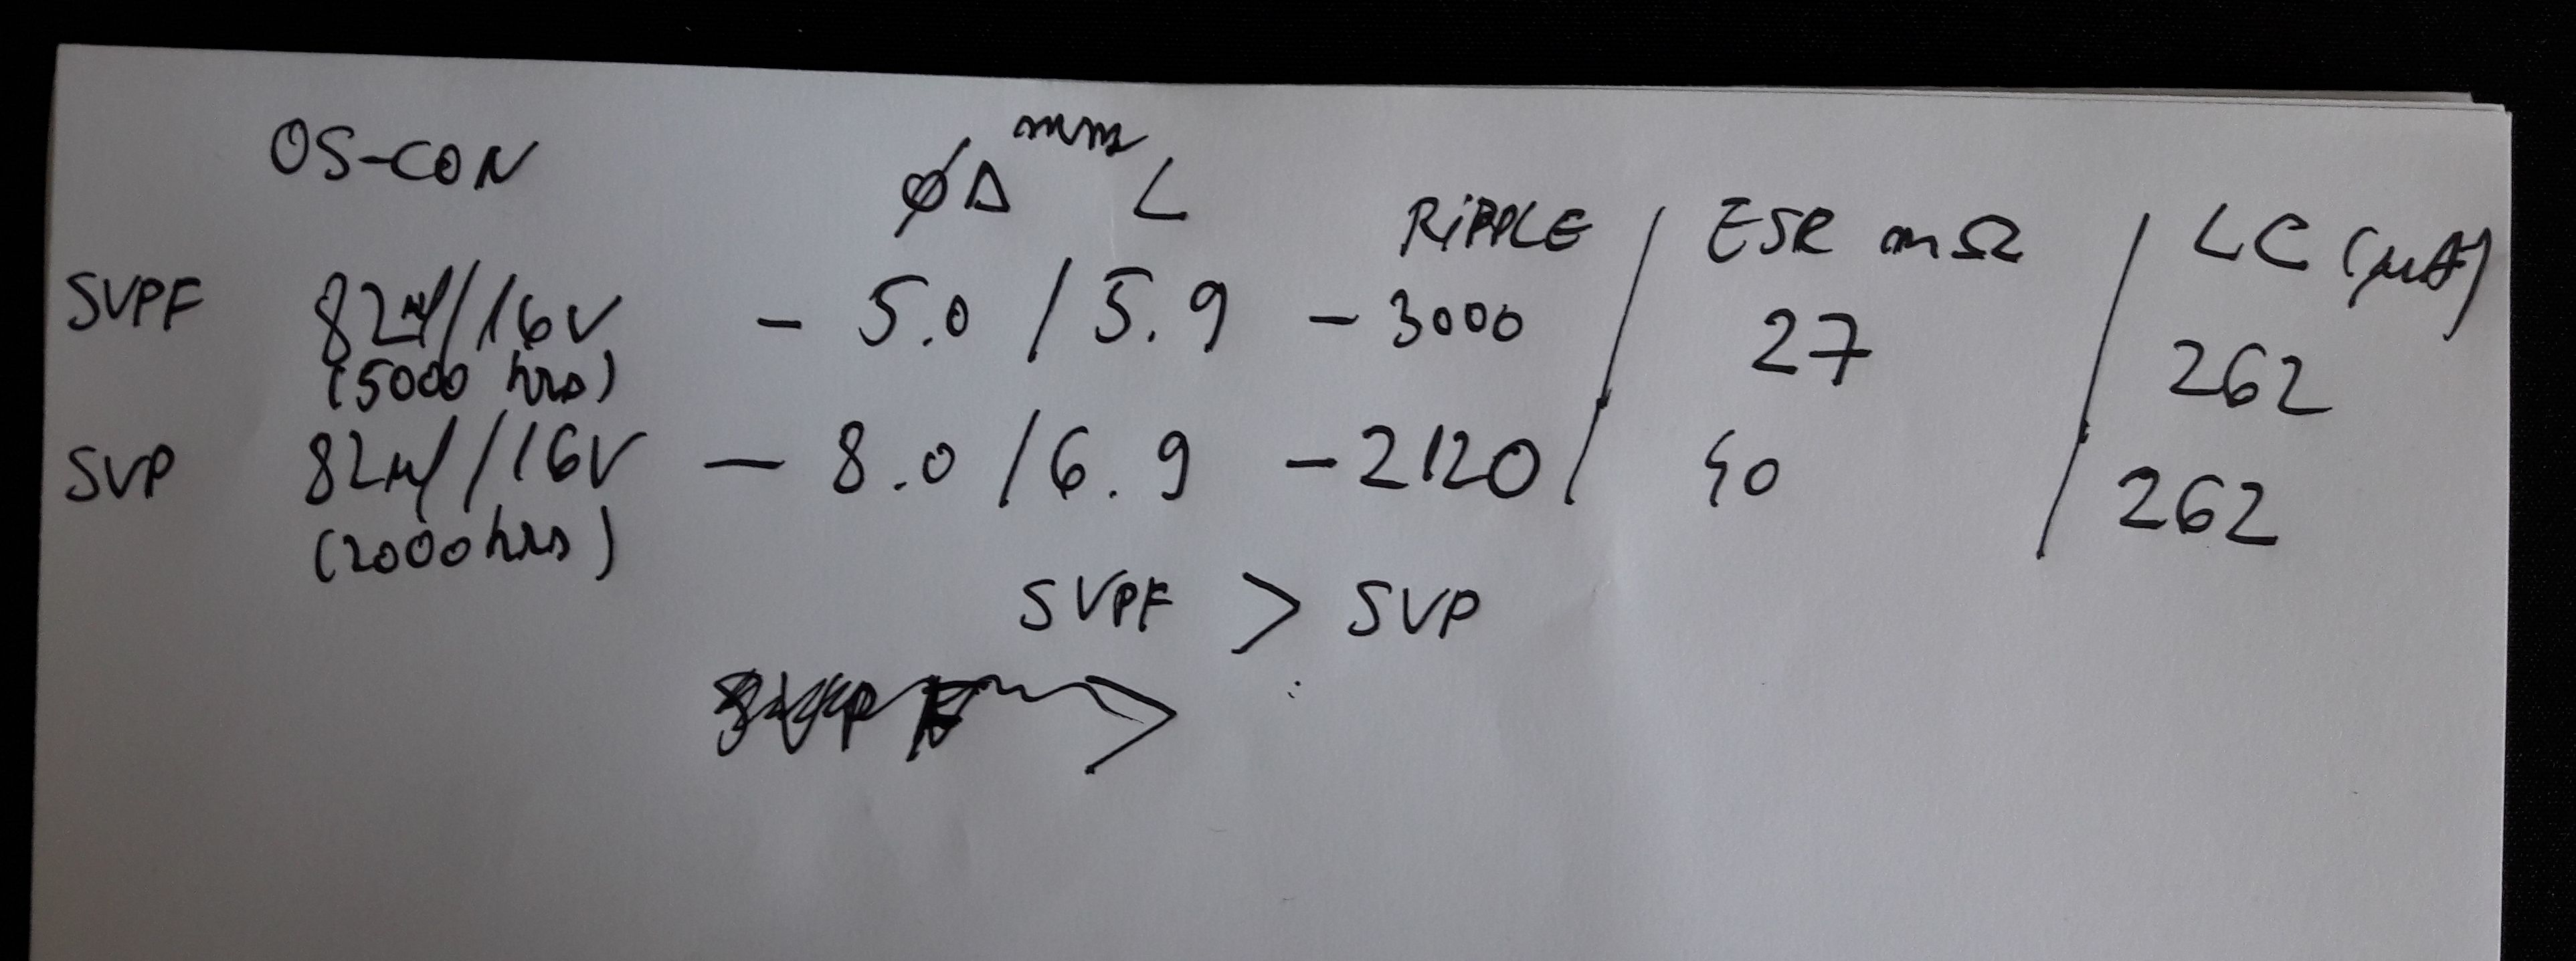 OS-CON
mm
øD L
RIPPLE / ESR mΩ / LC (μA)
SVPF 82μf/16V - 5.0 / 5.9 - 3000 / 27 / 262
(5000 hrs)
SVP 82μf/16V - 8.0 / 6.9 - 2120 / 40 / 262
(2000 hrs)
SVPF > SVP